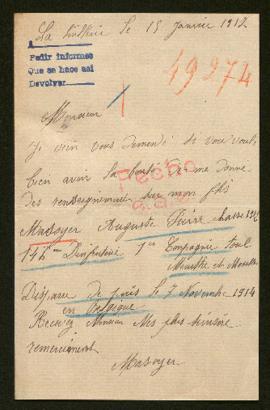 La le 15 Janvier 1917
Pedir informes
Que se hace así
Devolver
49274
Monsieur
Je vien vous demendé si vous voulé
bien avoir la bonté de me donne
des renseignement sur mon fils
Fecho
Masoyer Auguste classe 19
142me D'infanterie 1re Compagnie
Disparu depuis le 7 Novembre 1914
en Belgique
Recevez Monsieur Mes plus sincère
remerciement
Masoyer